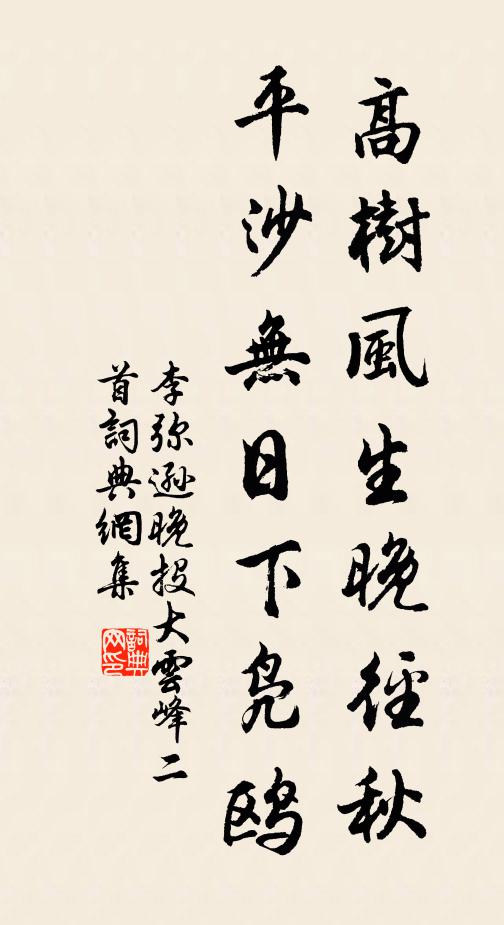 高樹風生晚徑秋
平沙無日下鳧鷗
李弥遜晚投大雲峰二
首詞典網集
詞典网印